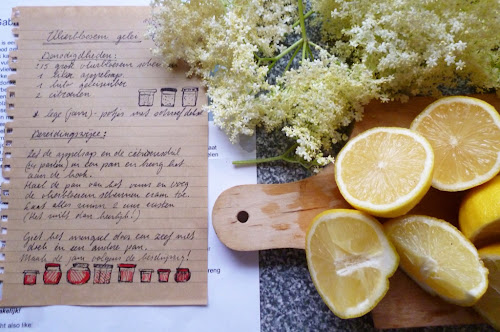 Vlierbloesem gelei
Benodigdheden:
±15 grote vlierbloesem schermen
1 liter appelsap
1 kilo geleisuiker
2 citroenen
& lege (jam) potjes met schroefdeksel
Bereidingswijze:
Zet de appelsap en de citroenschil
(in parten) in een pan en breng het
aan de kook.
Haal de pan van het vuur en voeg
de vlierbloesem schermen eraan toe.
Laat alles ruim 2 uur rusten
(Het ruikt dan heerlijk!)
Giet het mengsel door een zeef met
doek in een andere pan.
Maak de jam volgens de beschrijving!
akelijk!
ht also like: